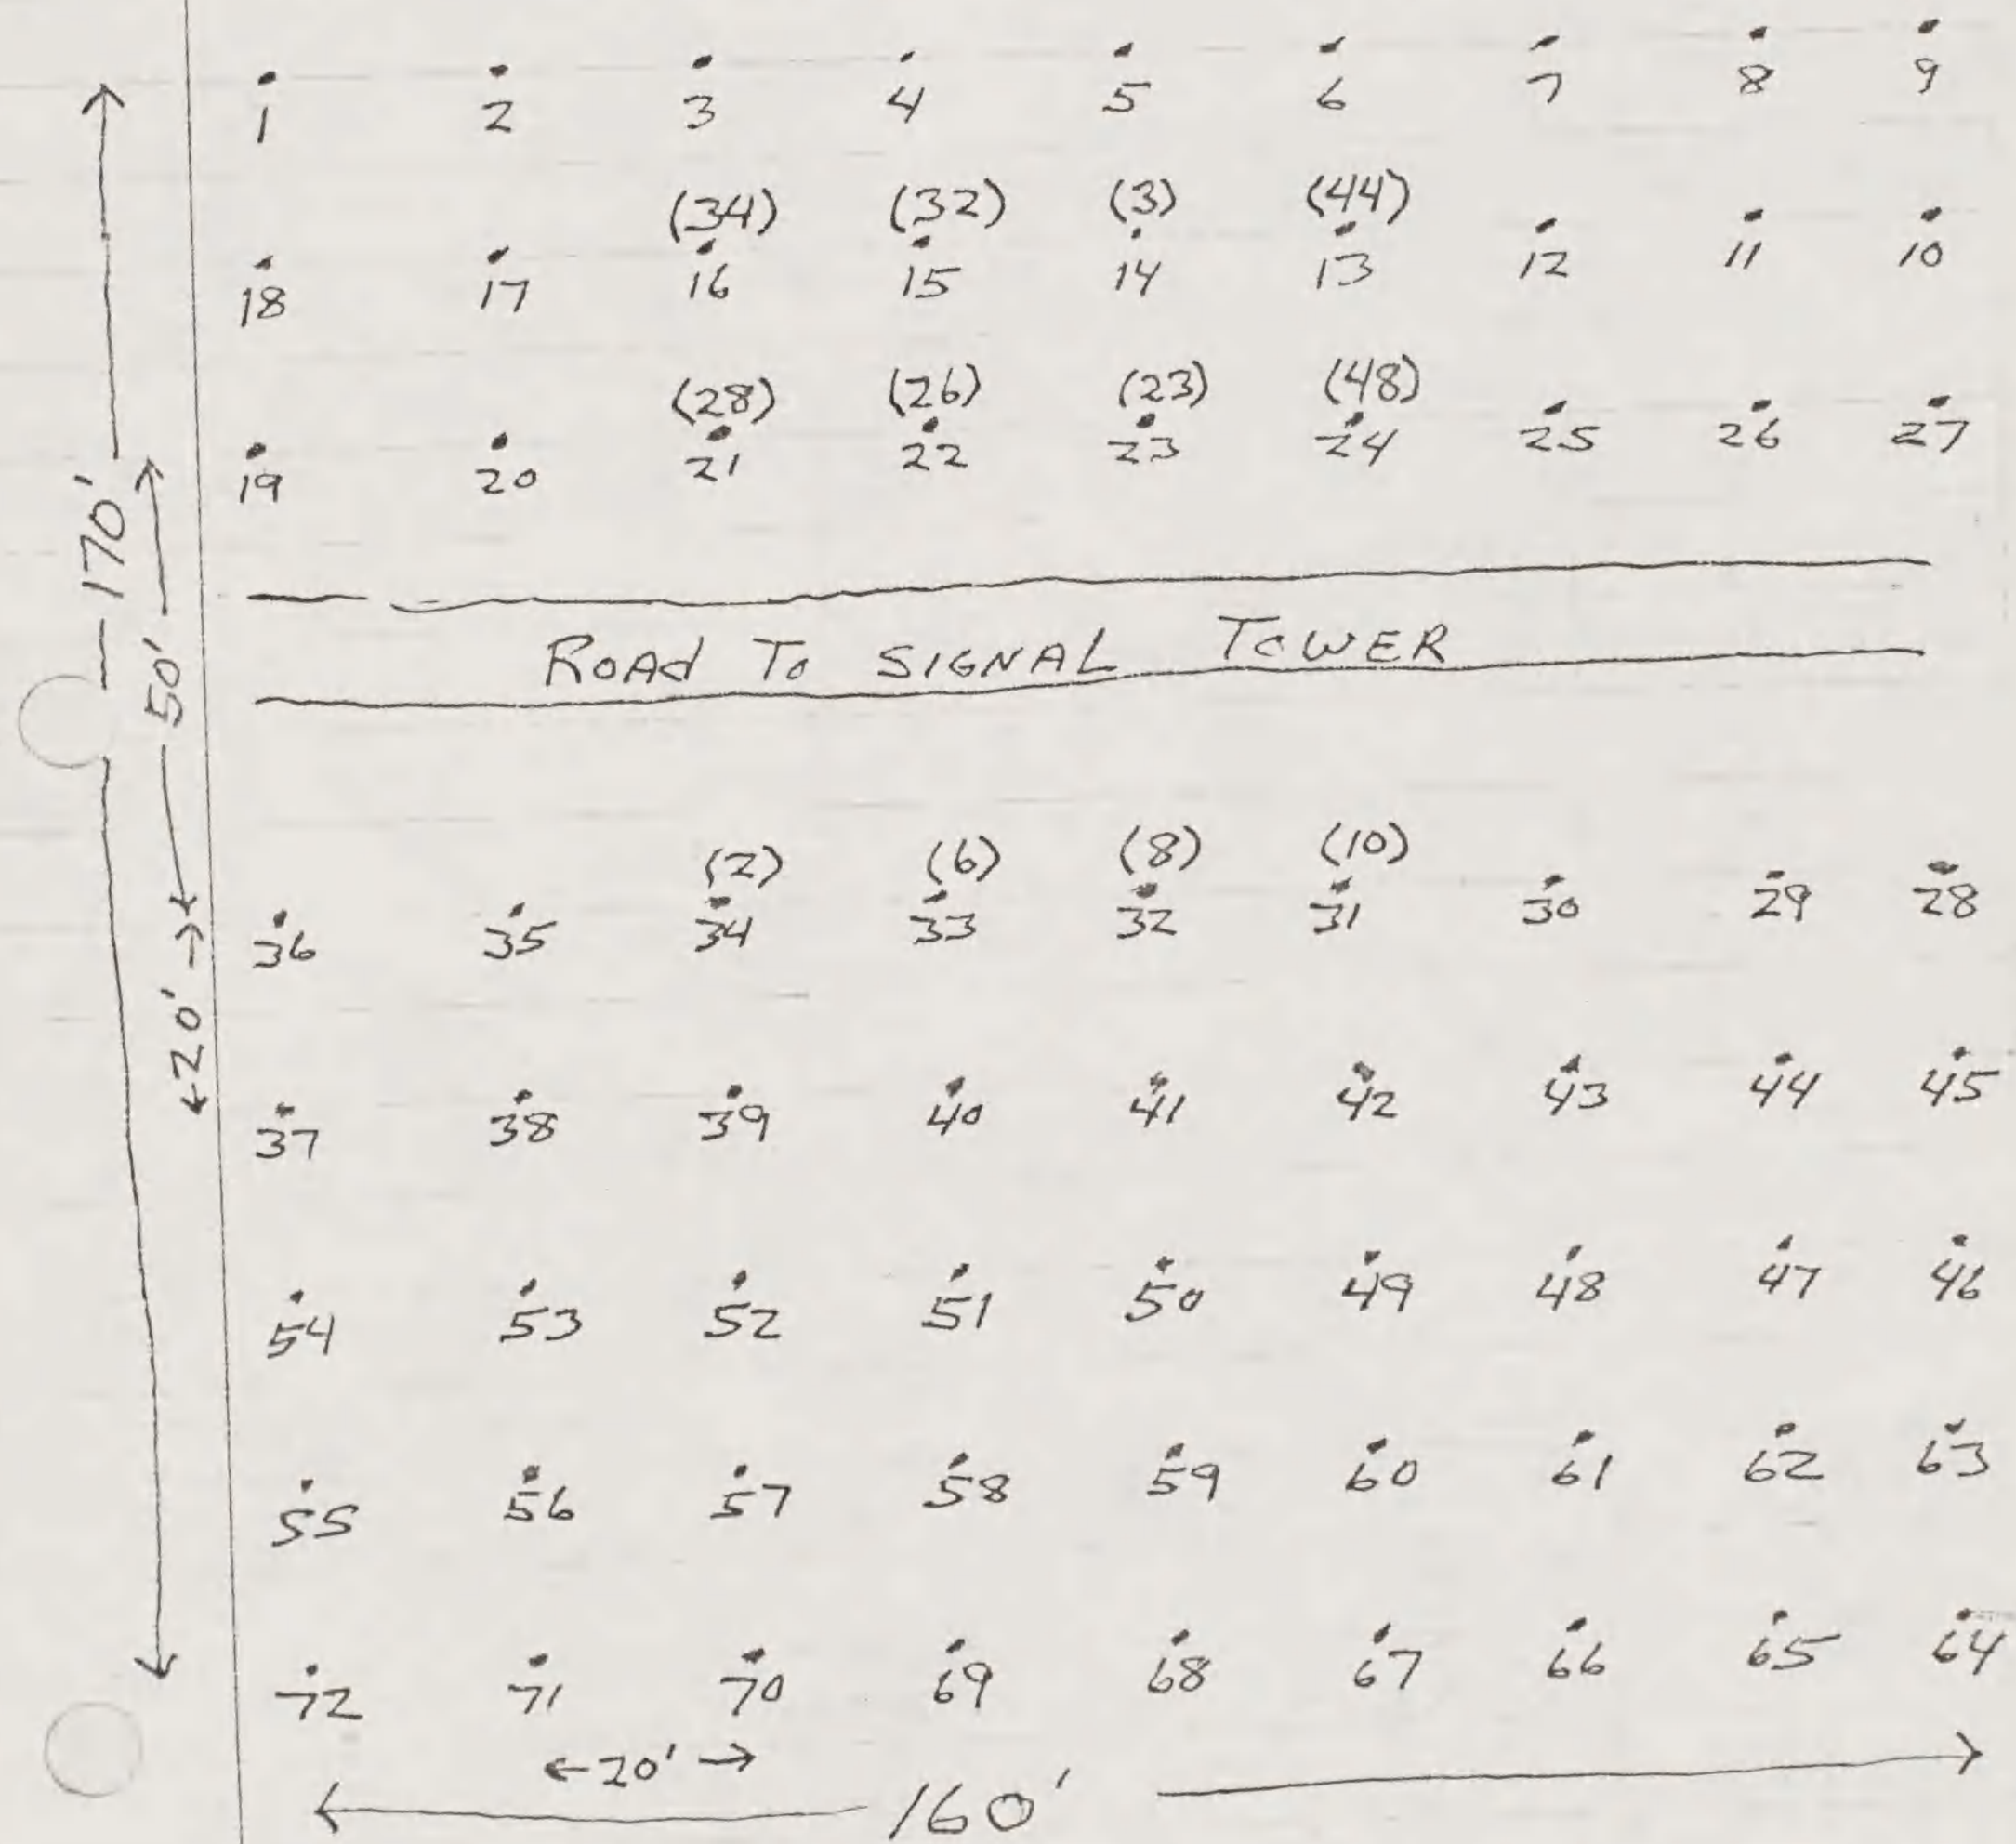 1 2 3 4 5 6 7 8 9
(34) (32) (3) (44)
18 17 16 15 14 13 12 11 10
(28) (26) (23) (48)
19 20 21 22 23 24 25 26 27
170'
50'
ROAd TO SIGNAL TOWER
(2) (6) (8) (10)
36 35 34 33 32 31 30 29 28
20'
37 38 39 40 41 42 43 44 45
54 53 52 51 50 49 48 47 46
55 56 57 58 59 60 61 62 63
72 71 70 69 68 67 66 65 64
20'
160'